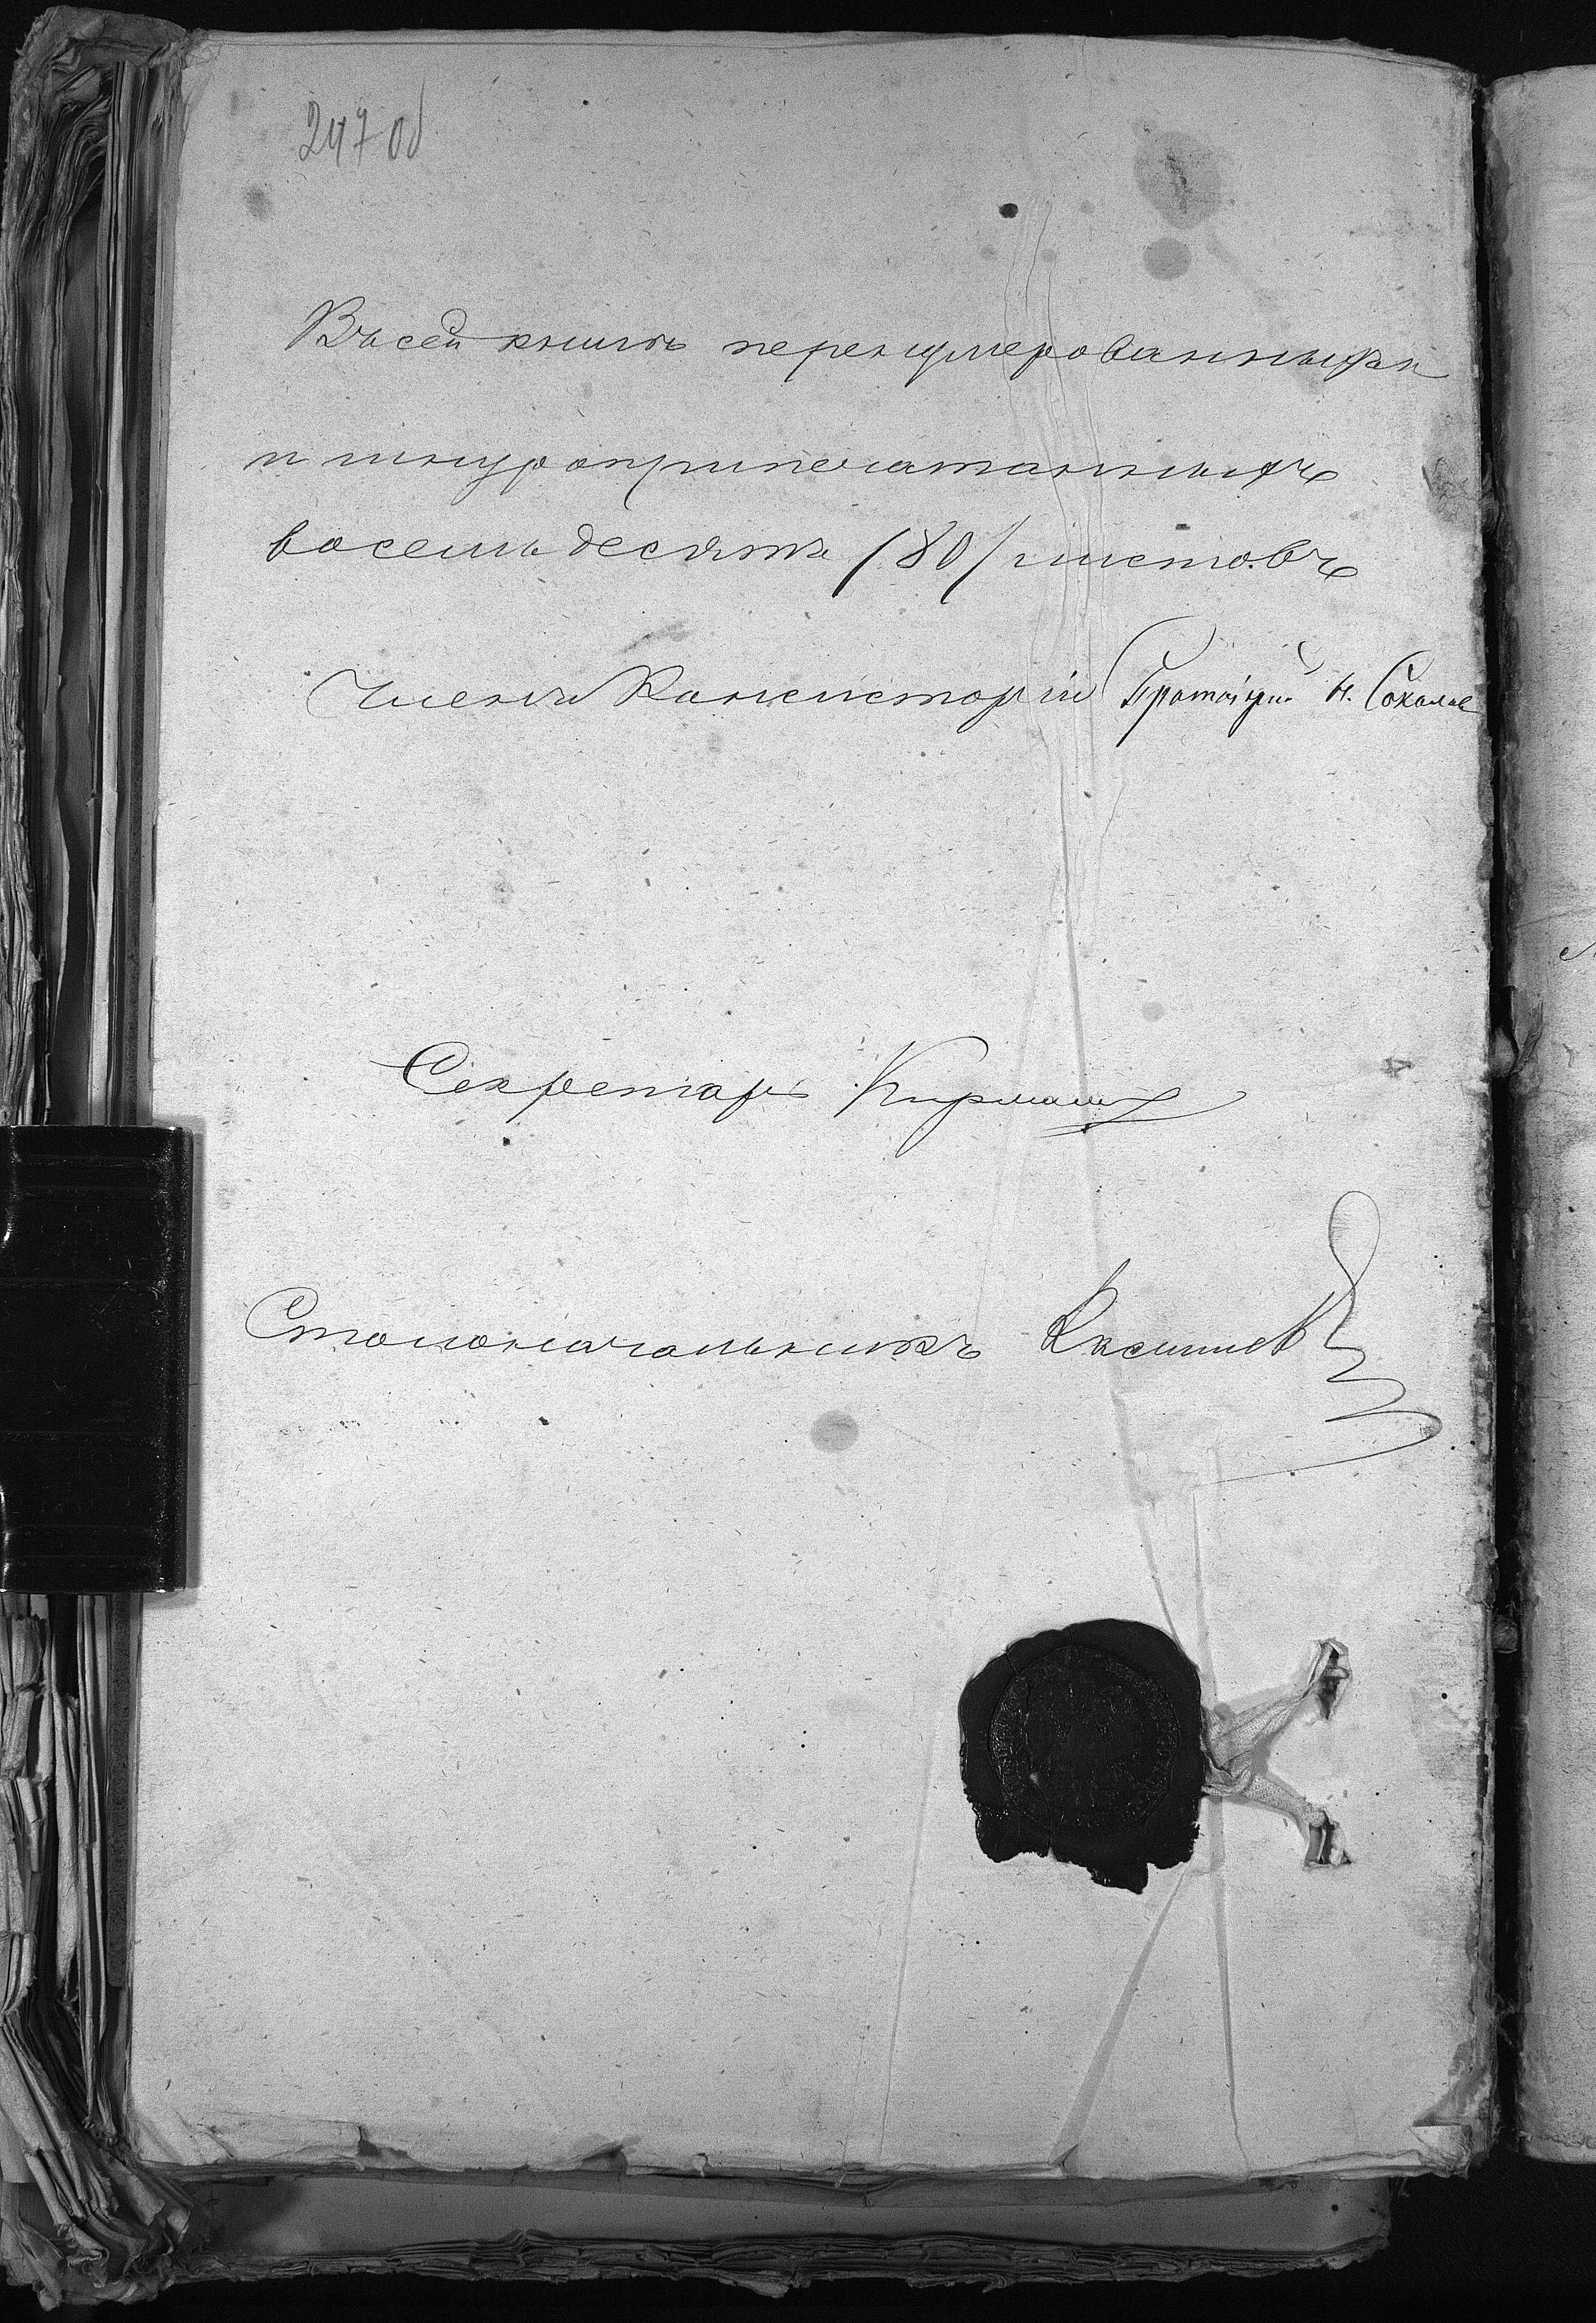 247 об
Въ сей книгѣ перенумерованныхъ
и шнуроприпечатанныхъ
восемьдесятъ /80/ листовъ
Членъ Консисторіи Протоіерей Н. Соколов
Секретарь
Столоначальникъ